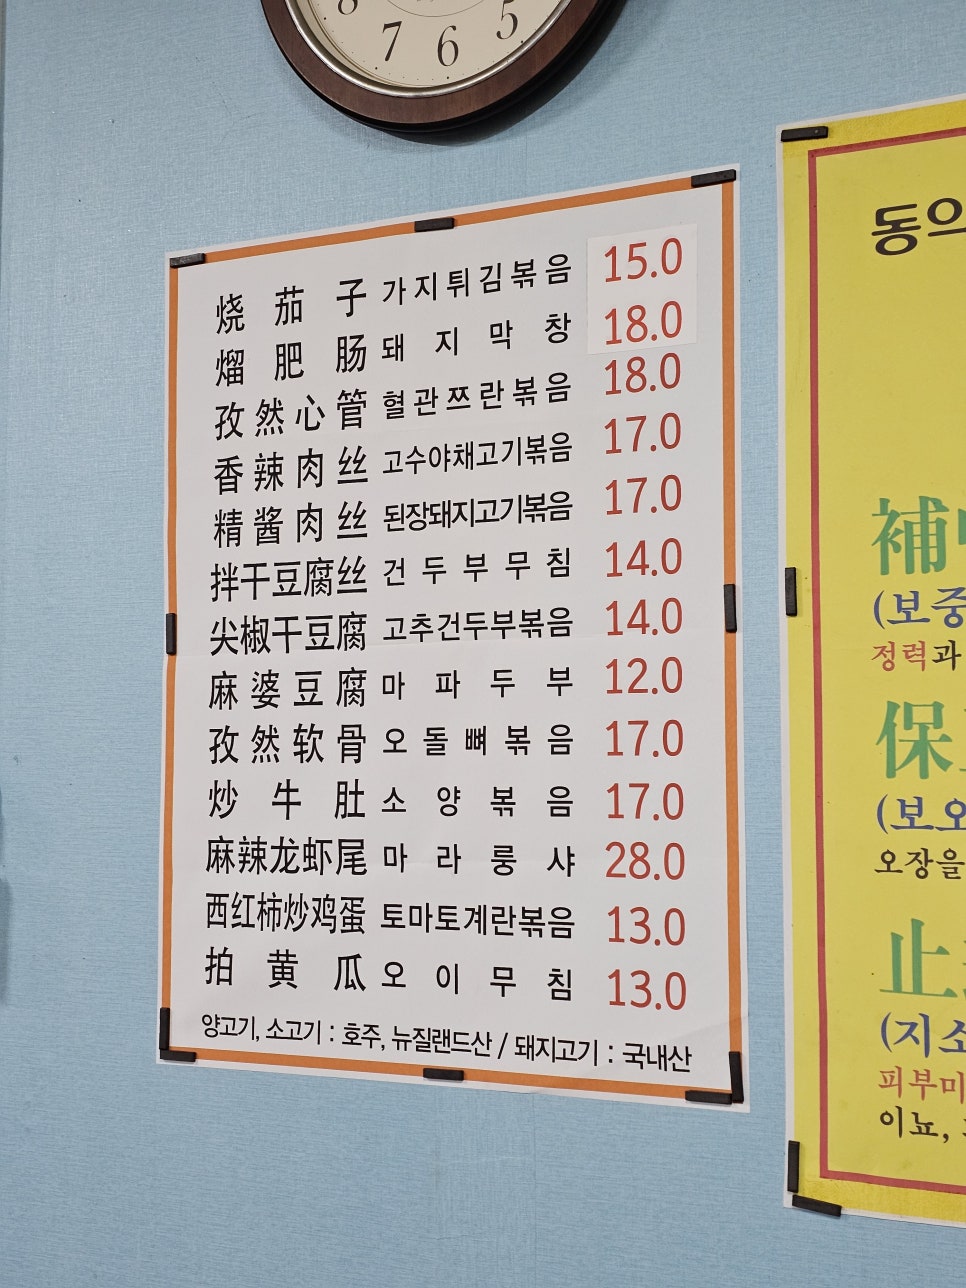 8 7 6 5
烧茄子 가지튀김볶음 15.0
熘肥肠 돼지막창 18.0
孜然心管 혈관쯔란볶음 18.0
香辣肉丝 고수야채고기볶음 17.0
精酱肉丝 된장돼지고기볶음 17.0
拌干豆腐丝 건두부무침 14.0
尖椒干豆腐 고추건두부볶음 14.0
麻婆豆腐 마파두부 12.0
孜然软骨 오돌뼈볶음 17.0
炒牛肚 소양볶음 17.0
麻辣龙虾尾 마라룽샤 28.0
西红柿炒鸡蛋 토마토계란볶음 13.0
拍黄瓜 오이무침 13.0
양고기, 소고기 : 호주, 뉴질랜드산 / 돼지고기 : 국내산
동의
補
(보중
정력과
保
(보오
오장을
止
(지소
피부미
이뇨,